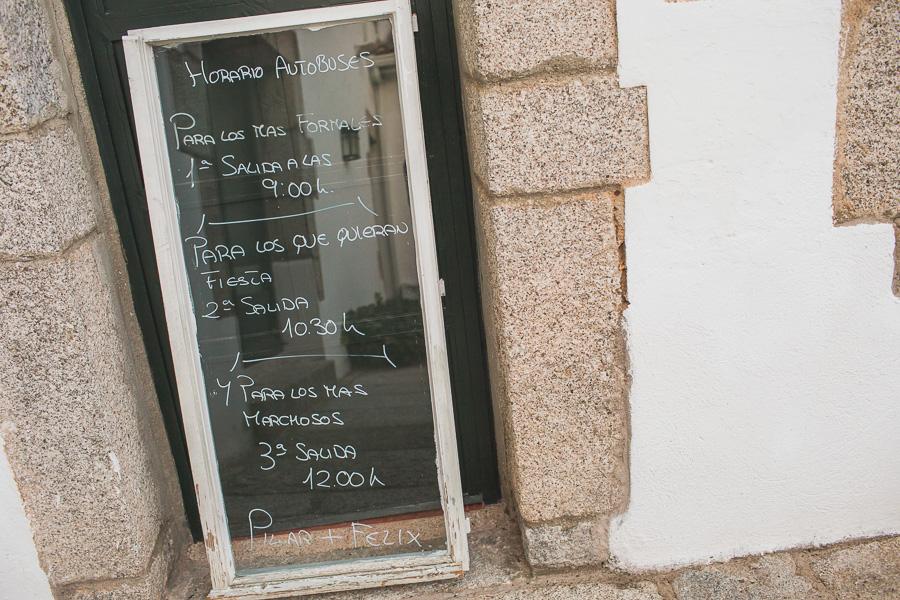 HORARIO AUTOBUSES
PARA LOS MAS FORMALES
1ª SALIDA A LAS
9:00 h.
PARA LOS QUE QUIERAN
FIESTA
2ª SALIDA
10.30 h
Y PARA LOS MAS
MARCHOSOS
3ª SALIDA
12.00 h
PILAR + FELIX